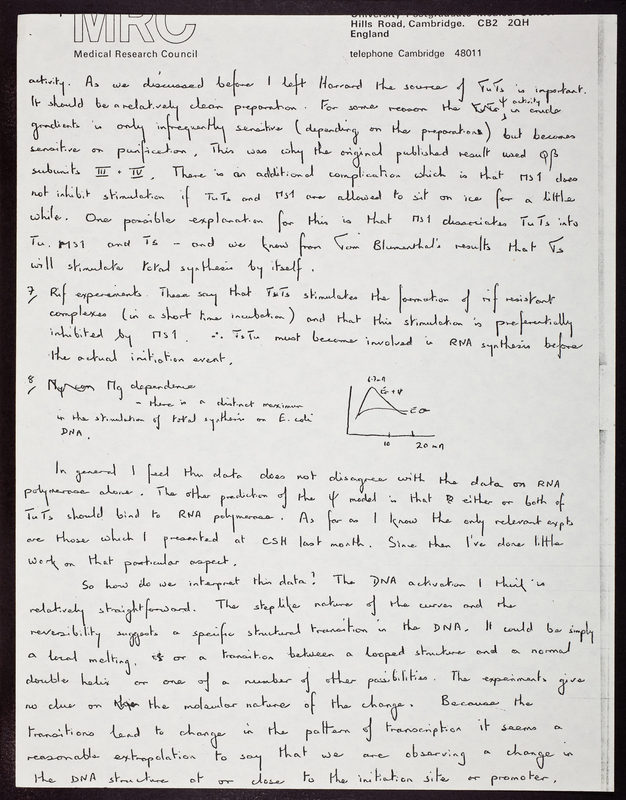 MRC
Medical Research Council
University Postgraduate Medical School
Hills Road, Cambridge. CB2 2QH
England
telephone Cambridge 48011
activity. As we discussed before I left Harvard the source of TuTs is important.
It should be a relatively clean preparation. For some reason the ψ activity in crude
gradients is only infrequently sensitive (depending on the preparations) but becomes
sensitive on purification. This was why the original published result used Qβ
subunits III + IV. There is an additional complication which is that MS1 does
not inhibit stimulation if TuTs and MS1 are allowed to sit on ice for a little
while. One possible explanation for this is that MS1 dissociates TuTs into
Tu.MS1 and Ts - and we know from Tom Blumenthal's results that Ts
will stimulate total synthesis by itself.
7/ Rif experiments. These say that TuTs stimulates the formation of rif resistant
complexes (in a short time incubation) and that this stimulation is preferentially
inhibited by MS1. ∴ TsTu must become involved in RNA synthesis before
the actual initiation event.
8/ Mg dependence
- there is a distinct maximum
in the stimulation of total synthesis on E. coli
DNA.
E+ψ
E
10 20 mM
In general I feel this data does not disagree with the data on RNA
polymerase alone. The other prediction of the ψ model is that either or both of
TuTs should bind to RNA polymerase. As far as I know the only relevant expts
are those which I presented at CSH last month. Since then I've done little
work on that particular aspect.
So how do we interpret this data? The DNA activation I think is
relatively straightforward. The steplike nature of the curves and the
reversibility suggests a specific structural transition in the DNA. It could be simply
a local melting, or a transition between a looped structure and a normal
double helix or one of a number of other possibilities. The experiments give
no clue on the molecular nature of the change. Because the
transitions lead to change in the pattern of transcription it seems a
reasonable extrapolation to say that we are observing a change in
the DNA structure at or close to the initiation site or promoter.